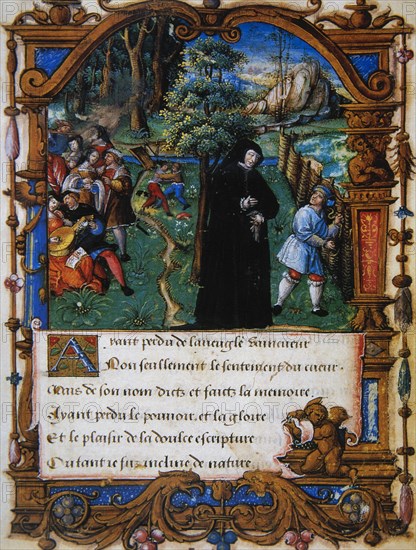 Ayant perdu de laueugle vaincueur
Non seullement le sentement du cueur
Mais de son nom dictz et faictz la memoire
Ayant perdu le pouuoir et la gloire
Et le plaisir de la doulce escripture
Ou tant ie fuz incline de nature